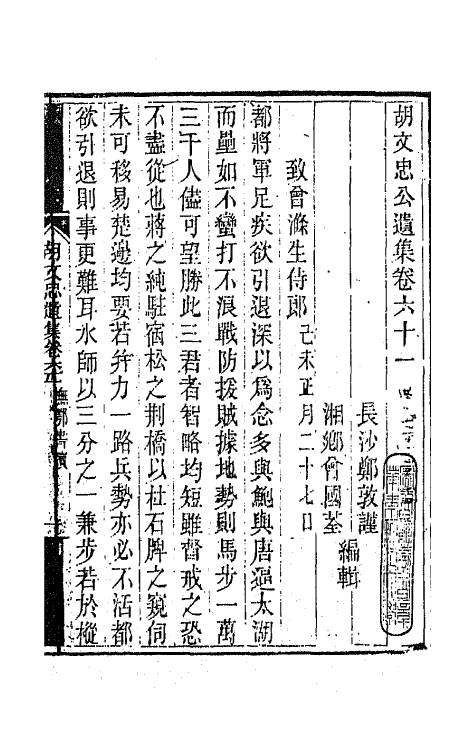 胡文忠公遺集卷六十一
長沙鄭敦謹
湘鄉曾國荃
編輯
致曾滌生侍郎己未正月二十七日
都將軍足疾欲引退深以爲念多與鮑與唐逼太湖
而壘如不蠻打不浪戰防援賊據地勢則馬步一萬
三千人儘可望勝此三君者智略均短雖督戒之恐
不盡從也蔣之純駐宿松之荆橋以杜石牌之窺伺
未可移易楚邊均要若并力一路兵勢亦必不活都
欲引退則事更難耳水師以三分之一兼步若於樅
胡文忠遺集卷六十一 撫鄂書牘